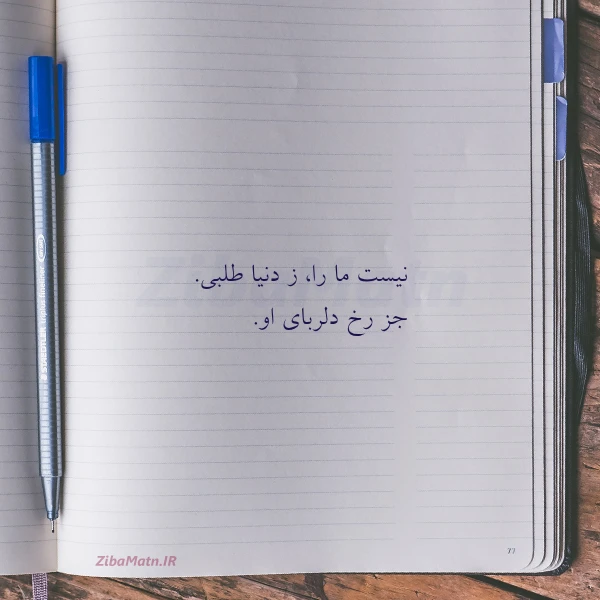 نیست ما را، ز دنیا طلبی.
جز رخ دلربای او.
ZibaMatn
ZibaMatn.IR
77